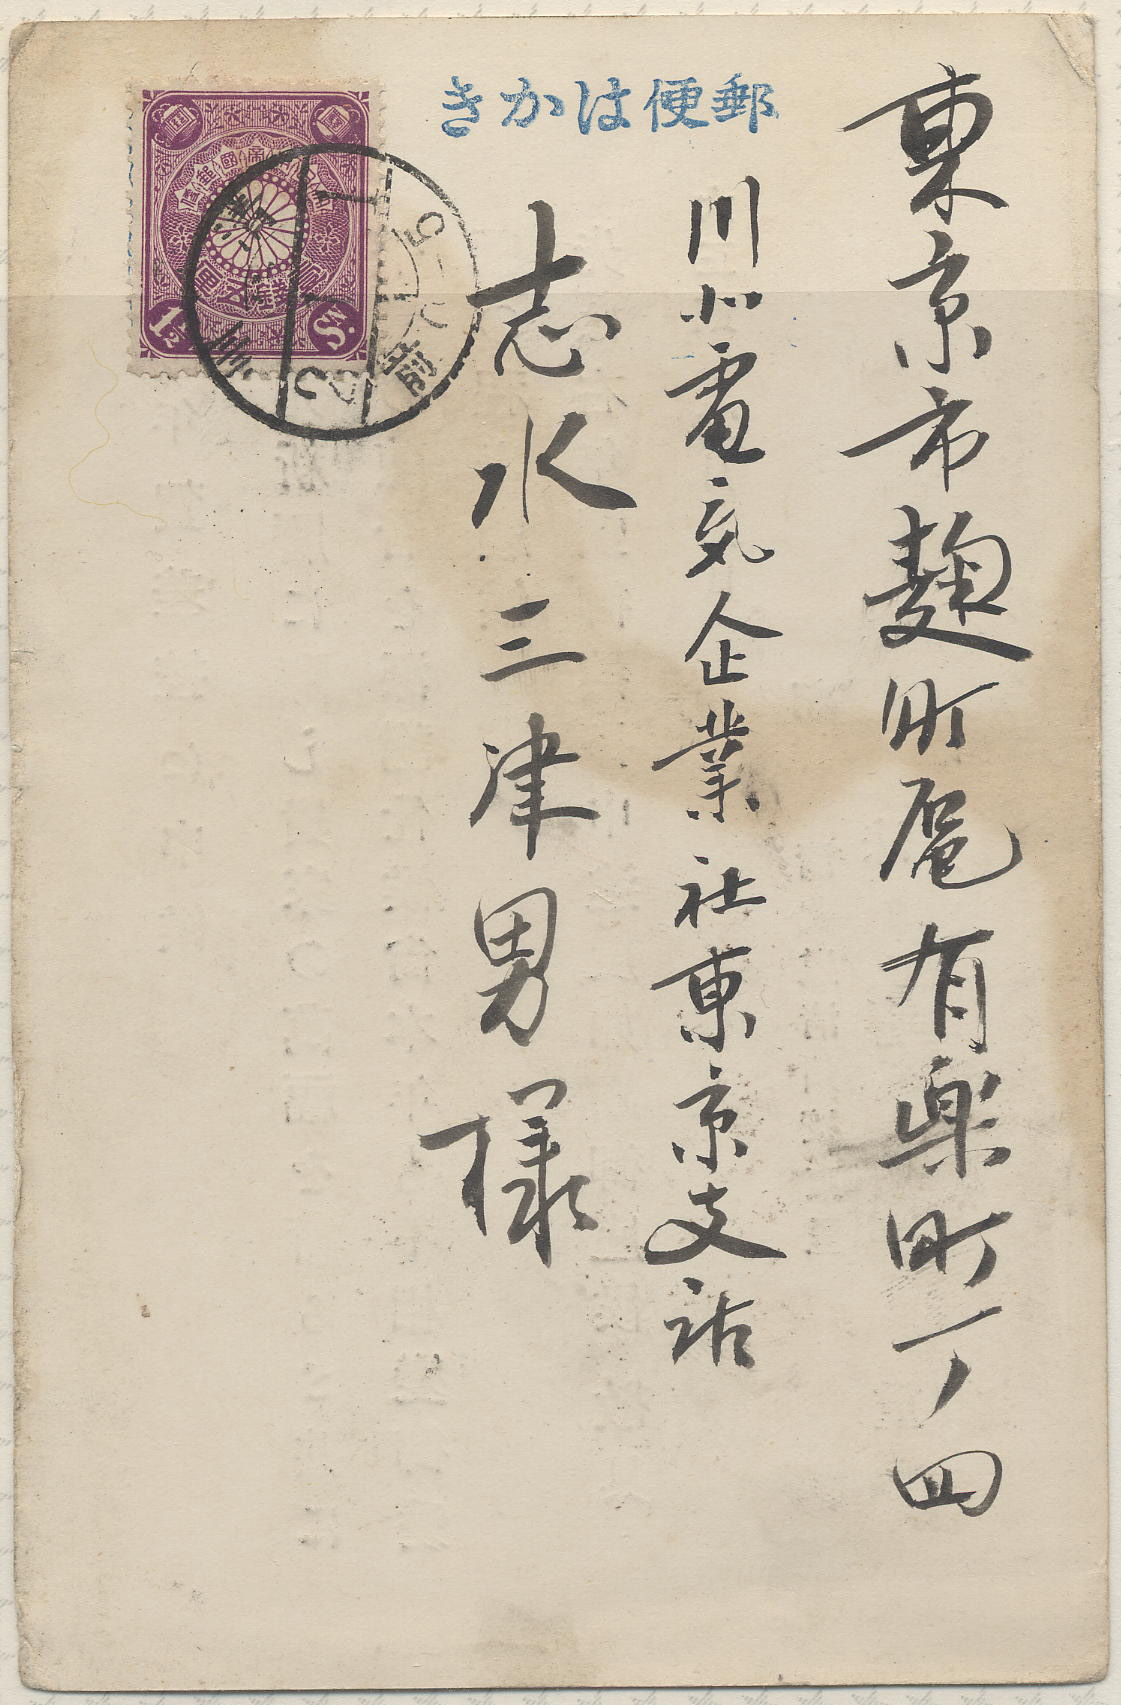 郵便はかき
東京市麹町區有楽町一ノ四
川北電気企業社東京支社
志水三津男様
1½ Sn.